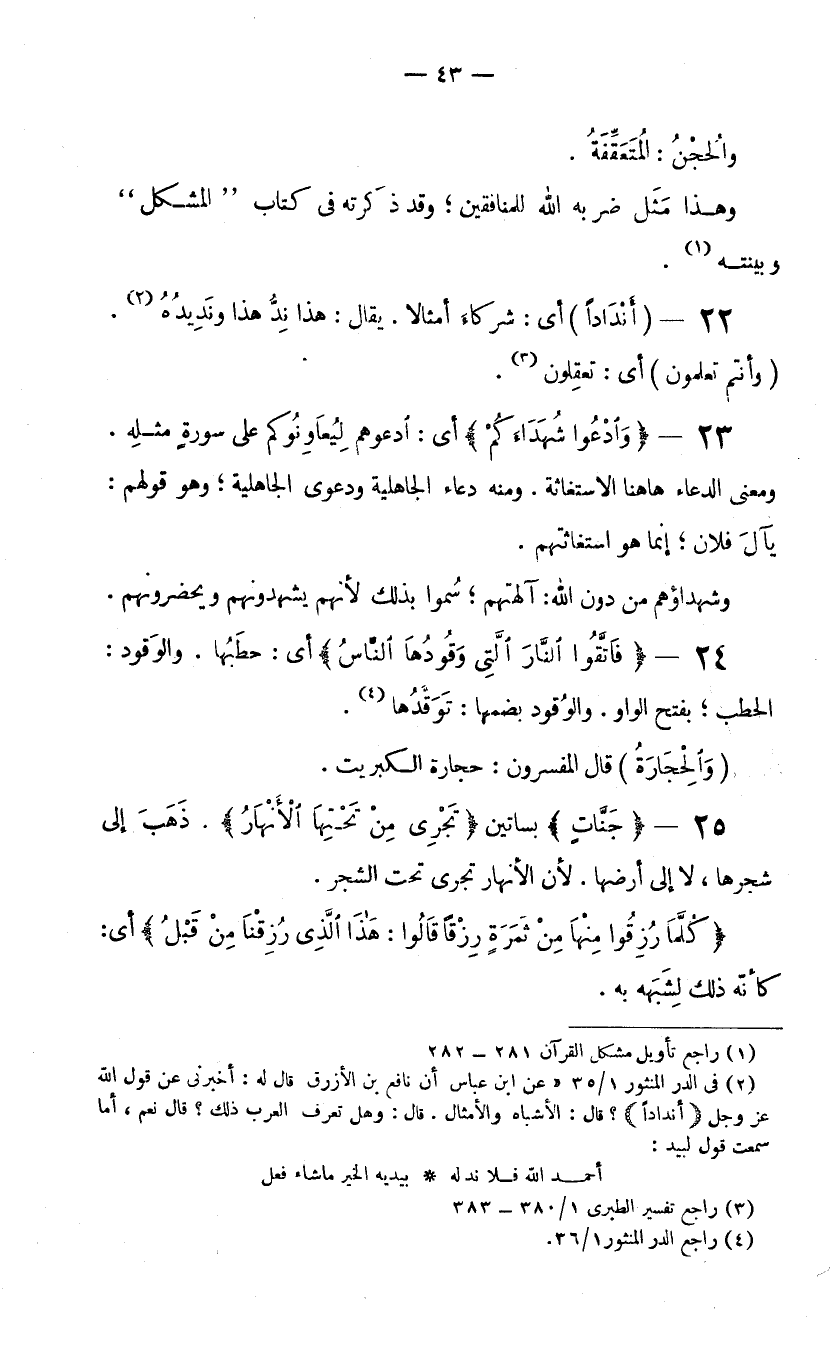 — ٤٣ —
والحُجْنُ : المُتَعَقِّفَةُ .
وهـذا مَثَل ضربه الله للمنافقين ؛ وقد ذكرته فى كتاب " المشـكل "
وبينتـه (١) .
٢٢ — ( أَنْدَاداً ) أى : شركاءَ أمثالا . يقال : هذا نِدُّ هذا ونَدِيدُهُ (٢) .
( وأنتم تعلمون ) أى : تعقِلون (٣) .
٢٣ — ﴿ وَٱدْعُوا شُهَدَاءَكُمْ ﴾ أى : ٱدعوهم لِيُعَاوِنُوكم على سورةٍ مثـلِهِ .
ومعنى الدعاء هاهنا الاستغاثة . ومنه دعاء الجاهلية ودعوى الجاهلية ؛ وهو قولهم :
يآلَ فلان ؛ إنما هو استغاثتهم .
وشهداؤهم من دون الله: آلهتهم ؛ سُموا بذلك لأنهم يشهدونهم ويحضرونهم .
٢٤ — ﴿ فَاتَّقُوا ٱلنَّارَ ٱلَّتِى وَقُودُهَا ٱلنَّاسُ ﴾ أى : حطَبُها . والوَقود :
الحطب ؛ بفتح الواو . والوُقود بضمها : تَوَقُّدُها (٤) .
( وَٱلْحِجَارَةُ ) قال المفسرون : حجارة الـكبريت .
٢٥ — ﴿ جَنَّاتٍ ﴾ بساتين ﴿ تَجْرِى مِنْ تَحْـتِهَا ٱلْأَنْهَارُ ﴾ . ذَهَبَ إلى
شجرها ، لا إلى أرضها . لأن الأنهار تجرى تحت الشجر .
﴿ كُلَّمَا رُزِقُوا مِنْهَا مِنْ ثَمَرَةٍ رِزْقًا قَالُوا : هَٰذَا ٱلَّذِى رُزِقْنَا مِنْ قَبْلُ ﴾ أى:
كأنّه ذلك لِشَبَهه به .
(١) راجع تأويل مشكل القرآن ٢٨١ — ٢٨٢
(٢) فى الدر المنثور ٣٥/١ « عن ابن عباس أن نافع بن الأزرق قال له : أخبرنى عن قول الله
عز وجل ﴿ أنداداً ﴾ ؟ قال : الأشباه والأمثال . قال : وهل تعرف العرب ذلك ؟ قال نعم ، أما
سمعت قول لبيد :
أحمـد الله فـلا ند له * بيديه الخير ماشاء فعل
(٣) راجع تفسير الطبرى ٣٨٠/١ — ٣٨٣
(٤) راجع الدر المنثور ٣٦/١.